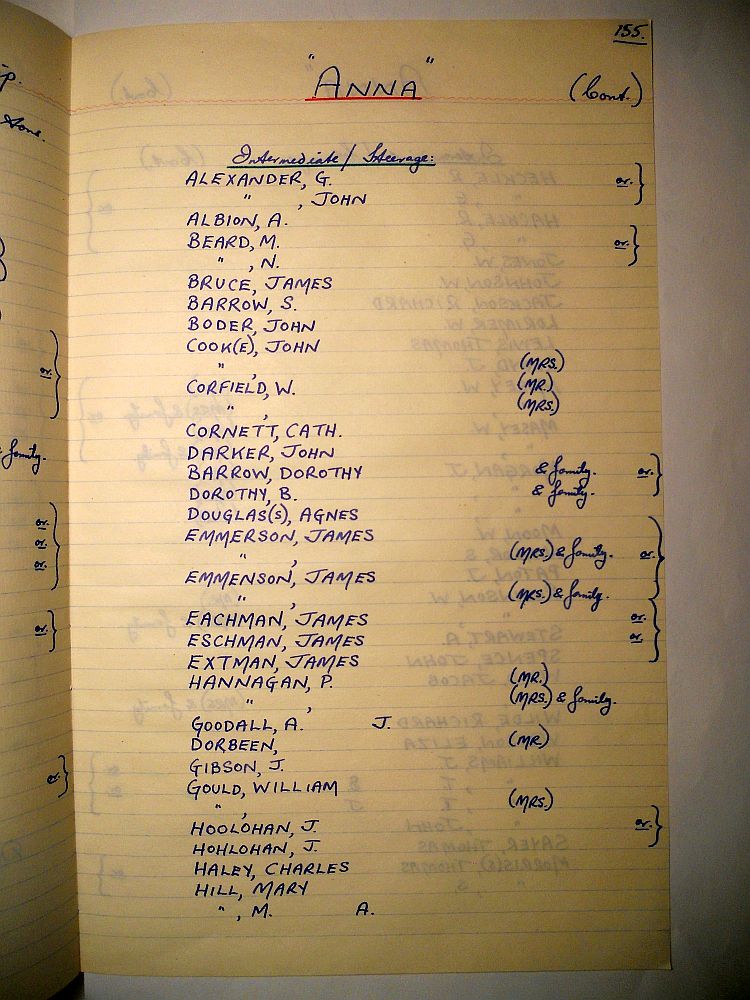 155.
"ANNA" (Cont.)
Intermediate/Steerage:
ALEXANDER, G. or. }
" , JOHN
ALBION, A.
BEARD, M. or. }
" , N.
BRUCE, JAMES
BARROW, S.
BODER, JOHN
COOK(E), JOHN
" , (MRS.)
CORFIELD, W. (MR.)
" , (MRS)
CORNETT, CATH.
DARKER, JOHN
BARROW, DOROTHY & family. or. }
DOROTHY, B. & family.
DOUGLAS(S), AGNES
EMMERSON, JAMES
" , (MRS.) & family. or. }
EMMENSON, JAMES
" , (MRS.) & family.
EACHMAN, JAMES or.
ESCHMAN, JAMES or. }
EXTMAN, JAMES
HANNAGAN, P. (MR.)
" , (MRS.) & family.
GOODALL, A. J.
DORBEEN, (MR)
GIBSON, J.
GOULD, WILLIAM
" , (MRS.)
HOOLOHAN, J. or. }
HOHLOHAN, J.
HALEY, CHARLES
HILL, MARY
" , M. A.
or. }
family.
or.
or.
or. }
or. }
or. }